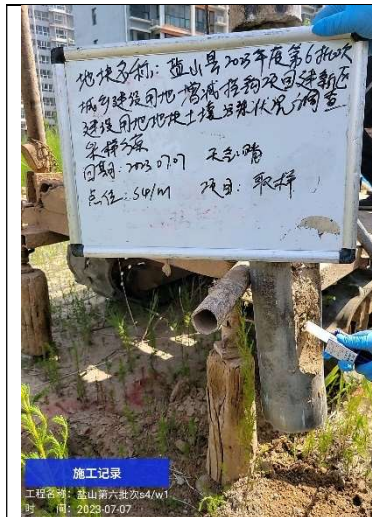 地块名称：盐山县2023年度第6批次
城乡建设用地增减挂钩项目建新区
建设用地地块土壤污染状况调查
采样
日期：2023.07.07 天气：晴
点位：S4/W1 项目：取样
施工记录
工程名称：盐山第六批次s4/w1
时 间：2023-07-07